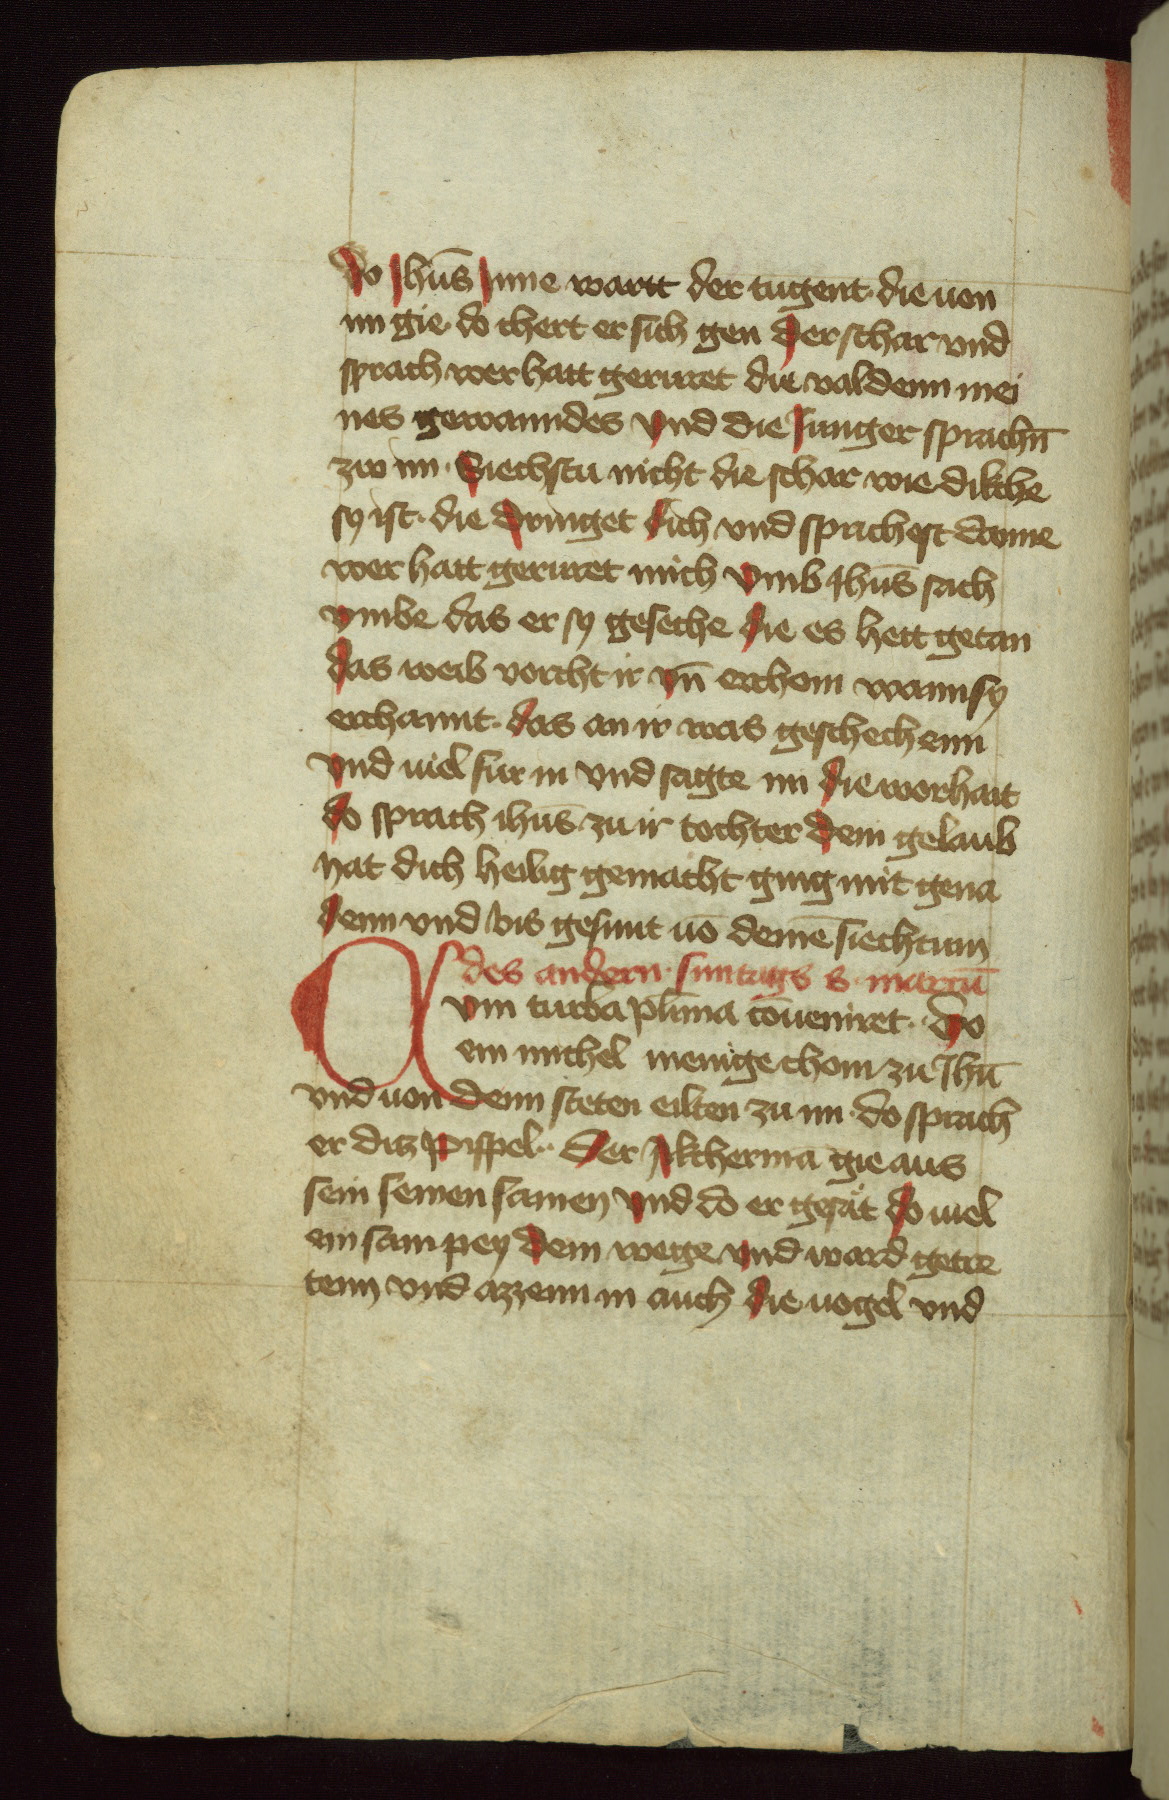 do Jhūs Inne wartt der tugent die uon
im gie do chert er sich gen der schar vnd
sprach wer hatt geruret die valdenn mei
nes gewanndes vnd die Junger sprachn̄
zw im Siechstu nicht die schar wie dikche
sy ist die dringet dich vnd sprichest danne
wer hatt geruret mich vmb Jhūs sach
vmbe das er sy geseche die es hett getan
das weib vorcht ir vn̄ erchom wann sy
erchannt das an ir was geschechenn
vnd uiel fur in vnd sagte im die worhait
do sprach ihūs zu ir tochter dein gelaub
hat dich heilig gemacht ging mit gena
denn vnd bis gesunt uō deinē siechtum
des andern suntags s. marcū
Cum turba plīma cōueniret Do
ein michel menige chom zu Jhū
vnd uon denn steten eilten zu im do sprach
er ditz pispel Der Akchermā gie aus
sein semen samen vnd do er gesät do uiel
ein sam pey dem wege vnd ward getre
tenn vnd azzenn in auch die uogel vnd